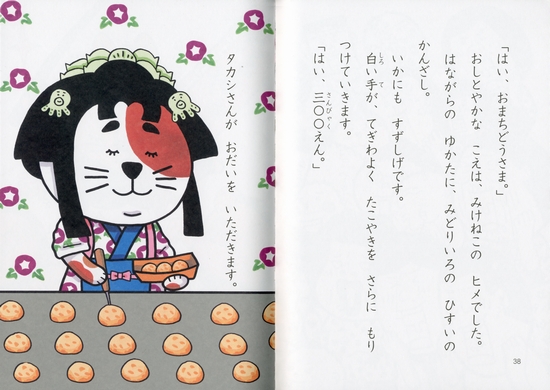 「はい、おまちどうさま。」
おしとやかな こえは、みけねこの ヒメでした。
はながらの ゆかたに、みどりいろの ひすいの
かんざし。
いかにも すずしげです。
白い手が、てぎわよく たこやきを さらに もり
しろ て
つけていきます。
「はい、三〇〇えん。」
さんびゃく
38
タカシさんが おだいを いただきます。